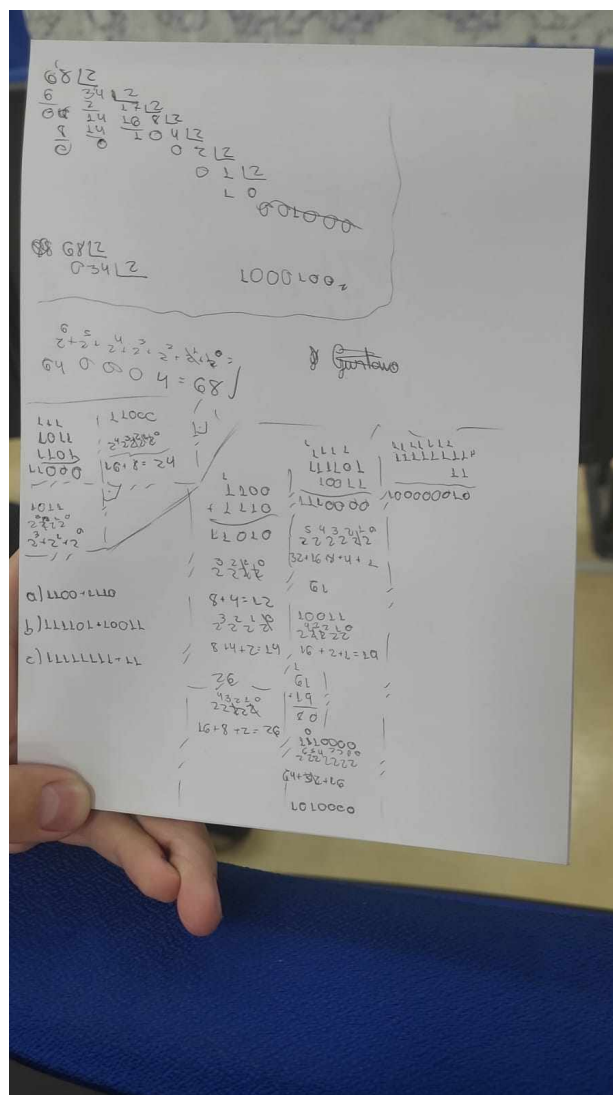 68 2
6 34 2
08 2 17 2
8 14 16 8 2
0 14 1 0 4 2
0 0 2 2
0 1 2
1 0
68 2
0 34 2
1000100₂
2⁶+2⁵+2⁴+2³+2²+2¹+2⁰=
64 0 0 0 4 = 68
Gustavo
111
1011
1101
11000
11000
2⁴2³2²2¹2⁰
16+8=24
1011
2³2²2¹2⁰
2³+2¹+2⁰
a) 1100+1110
b) 111101+10011
c) 11111111+11
1
1100
+ 1110
11010
3 2 1 0
2 2 2 2
8+4=12
3 2 1 0
2 2 2 2
8+4+2=14
26
4 3 2 1 0
2 2 2 2 2
16+8+2=26
1111
111101
10011
1110000
5 4 3 2 1 0
2 2 2 2 2 2
32+16+8+4+1
61
10011
4 3 2 1 0
2 2 2 2 2
16+2+1=19
1
61
+19
80
0
1110000
2222222
64+32+16
1010000
111111
11111111
11
100000010